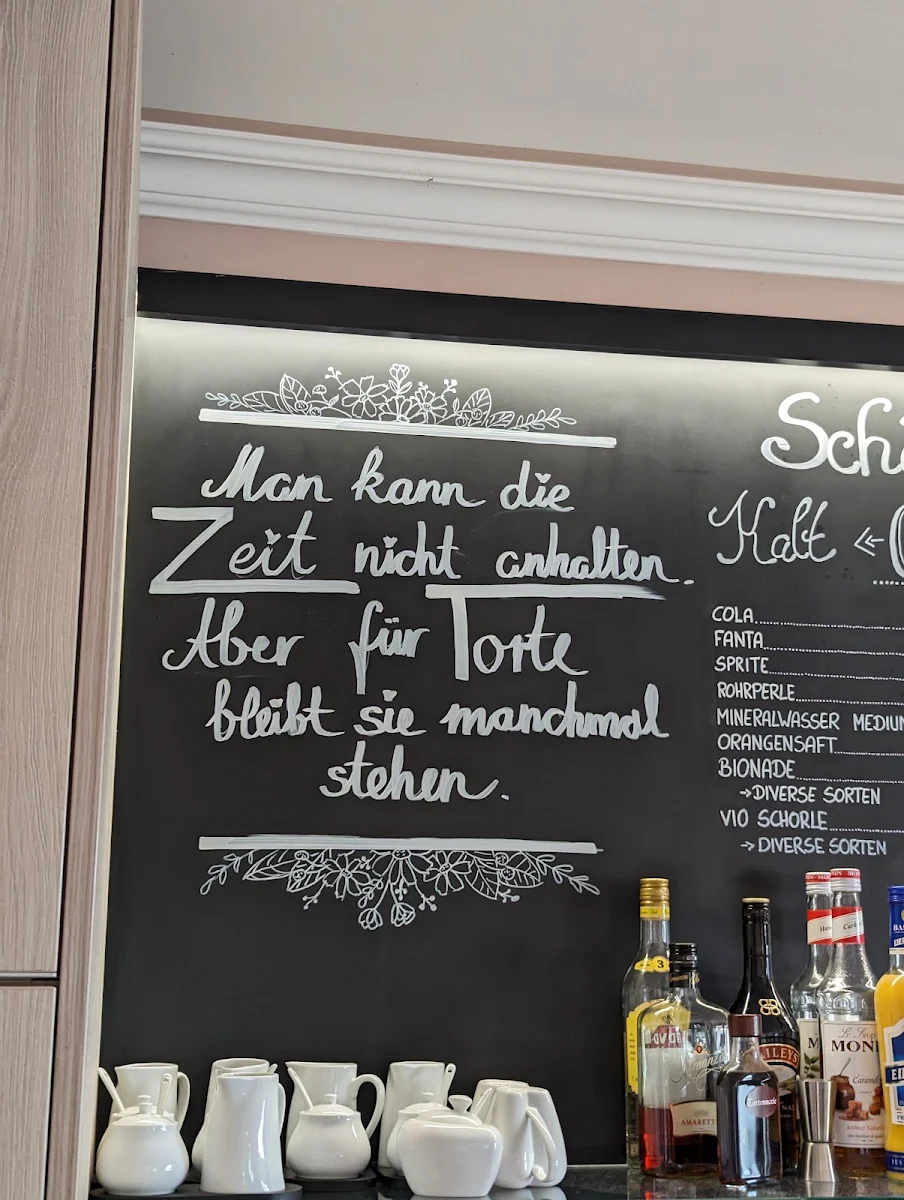 Man kann die
Zeit nicht anhalten.
Aber für Torte
bleibt sie manchmal
stehen.
Sch
Kalt «
COLA
FANTA
SPRITE
ROHRPERLE
MINERALWASSER MEDIUM
ORANGENSAFT
BIONADE
→DIVERSE SORTEN
VIO SCHORLE
→DIVERSE SORTEN
3
AMARETT
ILEYS
MONI
Caramel